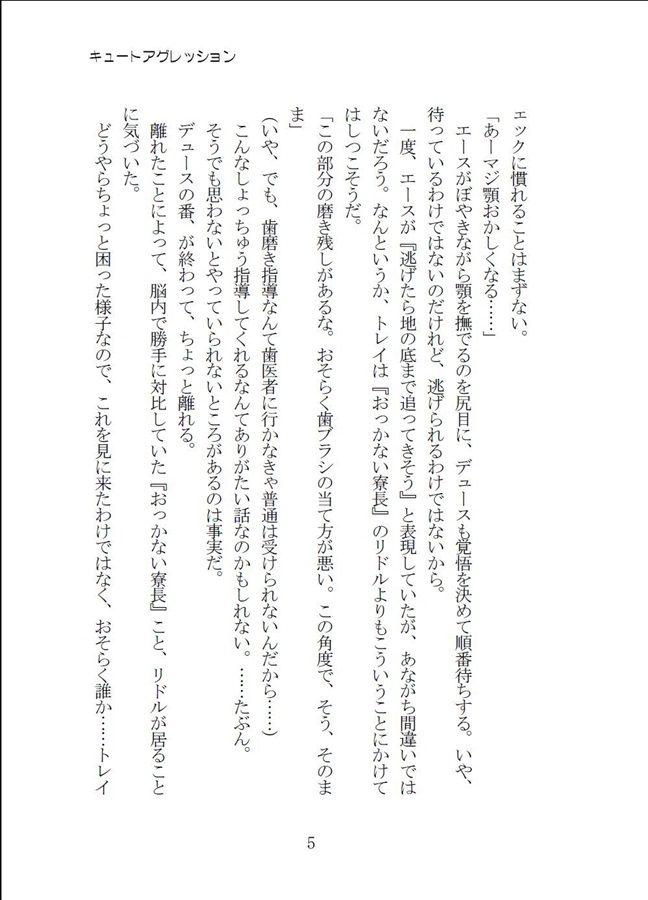 キュートアグレッション
ェックに慣れることはまずない。
「あーマジ顎おかしくなる……」
　エースがぼやきながら顎を撫でるのを尻目に、デュースも覚悟を決めて順番待ちする。いや、
待っているわけではないのだけれど、逃げられるわけではないから。
　一度、エースが『逃げたら地の底まで追ってきそう』と表現していたが、あながち間違いでは
ないだろう。なんというか、トレイは『おっかない寮長』のリドルよりもこういうことにかけて
はしつこそうだ。
「この部分の磨き残しがあるな。おそらく歯ブラシの当て方が悪い。この角度で、そう、そのま
ま」
（いや、でも、歯磨き指導なんて歯医者に行かなきゃ普通は受けられないんだから……）
　こんなしょっちゅう指導してくれるなんてありがたい話なのかもしれない。……たぶん。
　そうでも思わないとやっていられないところがあるのは事実だ。
　デュースの番、が終わって、ちょっと離れる。
　離れたことによって、脳内で勝手に対比していた『おっかない寮長』こと、リドルが居ること
に気づいた。
　どうやらちょっと困った様子なので、これを見に来たわけではなく、おそらく誰か……トレイ
5